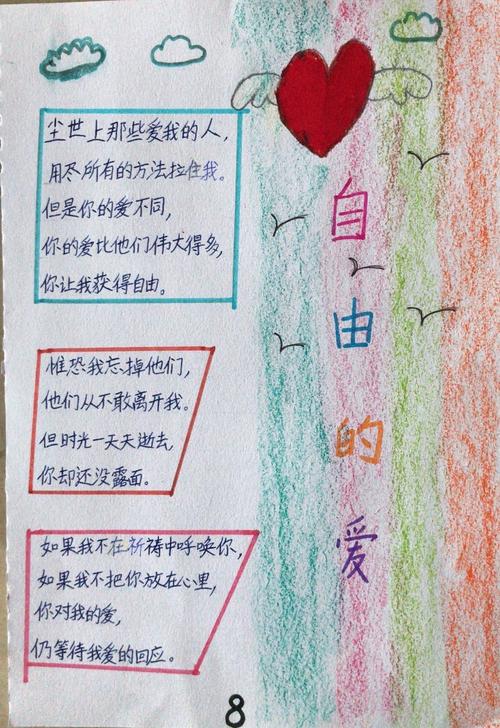 自由的爱
尘世上那些爱我的人，
用尽所有的方法拉住我。
但是你的爱不同，
你的爱比他们伟大得多，
你让我获得自由。
惟恐我忘掉他们，
他们从不敢离开我。
但时光一天天逝去，
你却还没露面。
如果我不在祈祷中呼唤你，
如果我不把你放在心里，
你对我的爱，
仍等待我爱的回应。
8